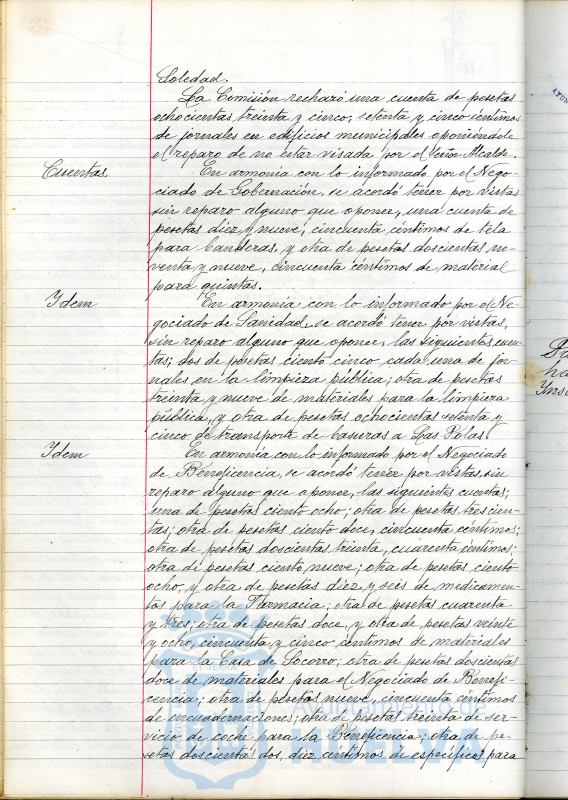 Soledad.
La Comisión rechazó una cuenta de pesetas
ochocientas treinta y cinco, setenta y cinco céntimos
de jornales en edificios municipales oponiéndole
el reparo de no estar visada por el Señor Alcalde.
Cuentas.
En armonía con lo informado por el Nego-
ciado de Gobernación, se acordó tener por vistas
sin reparo alguno que oponer, una cuenta de
pesetas diez y nueve, cincuenta céntimos de tela
para banderas, y otra de pesetas doscientas no-
venta y nueve, cincuenta céntimos de material
para quintas.
Ydem
En armonía con lo informado por el Ne-
gociado de Sanidad, se acordó tener por vistas,
sin reparo alguno que oponer, las siguientes cuen-
tas; dos de pesetas ciento cinco cada una de jor-
nales en la limpieza pública; otra de pesetas
treinta y nueve de materiales para la limpieza
pública, y otra de pesetas ochocientas setenta y
cinco de transporte de basuras a Las Polas
Ydem
En armonía con lo informado por el Negociado
de Beneficencia, se acordó tener por vistas, sin
reparo alguno que oponer, las siguientes cuentas;
una de pesetas ciento ocho; otra de pesetas trescien-
tas; otra de pesetas ciento doce, cincuenta céntimos;
otra de pesetas doscientas treinta, cuarenta céntimos;
otra de pesetas ciento nueve; otra de pesetas ciento
ocho, y otra de pesetas diez y seis de medicamen-
tos para la Farmacia; otra de pesetas cuarenta
y tres; otra de pesetas doce, y otra de pesetas veinte
y ocho, cincuenta y cinco céntimos de materiales
para la Casa de Socorro; otra de pesetas doscientas
doce de materiales para el Negociado de Benefi-
cencia; otra de pesetas nueve, cincuenta céntimos
de encuadernaciones; otra de pesetas treinta de ser-
vicio de coche para la Beneficencia; otra de pe-
setas doscientas dos, diez céntimos de específicos para